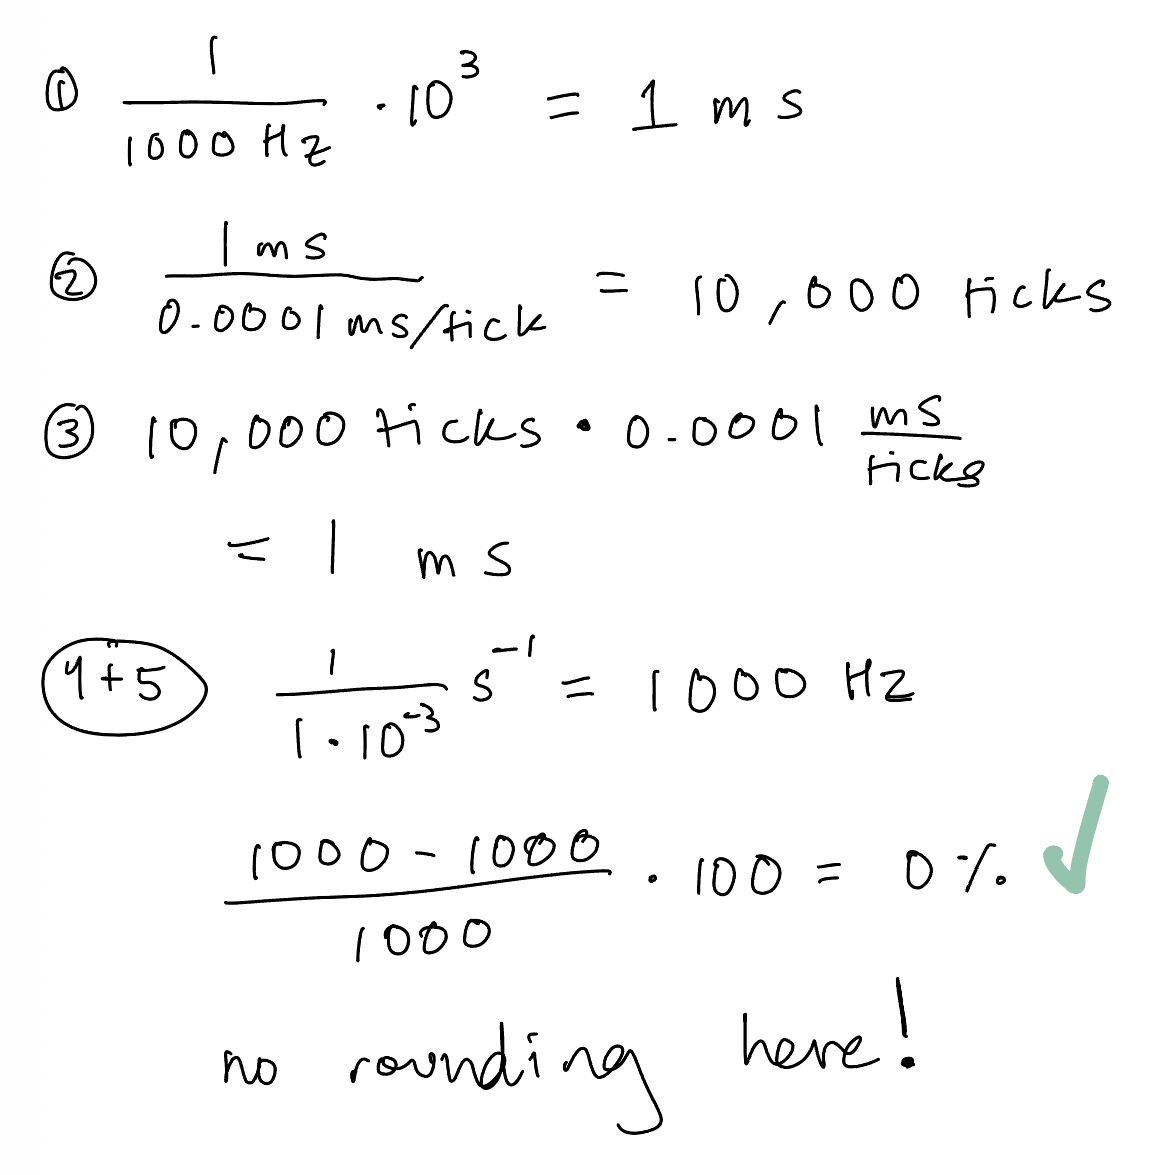 ① 1 / 1000 Hz · 10³ = 1 ms
② 1 ms / 0.0001 ms/tick = 10,000 ticks
③ 10,000 ticks · 0.0001 ms / ticks
= 1 ms
4+5 1 / 1·10⁻³ s⁻¹ = 1000 Hz
1000 - 1000 / 1000 · 100 = 0% ✓
no rounding here!